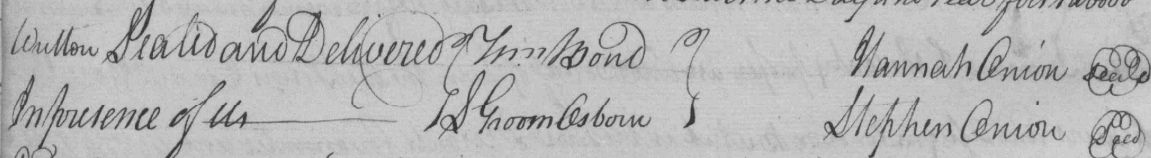 and year first above
Sealed and Delivered Wm Bond Hannah Onion Seal
In presence of us S Groom Osborn Stephen Onion Seal